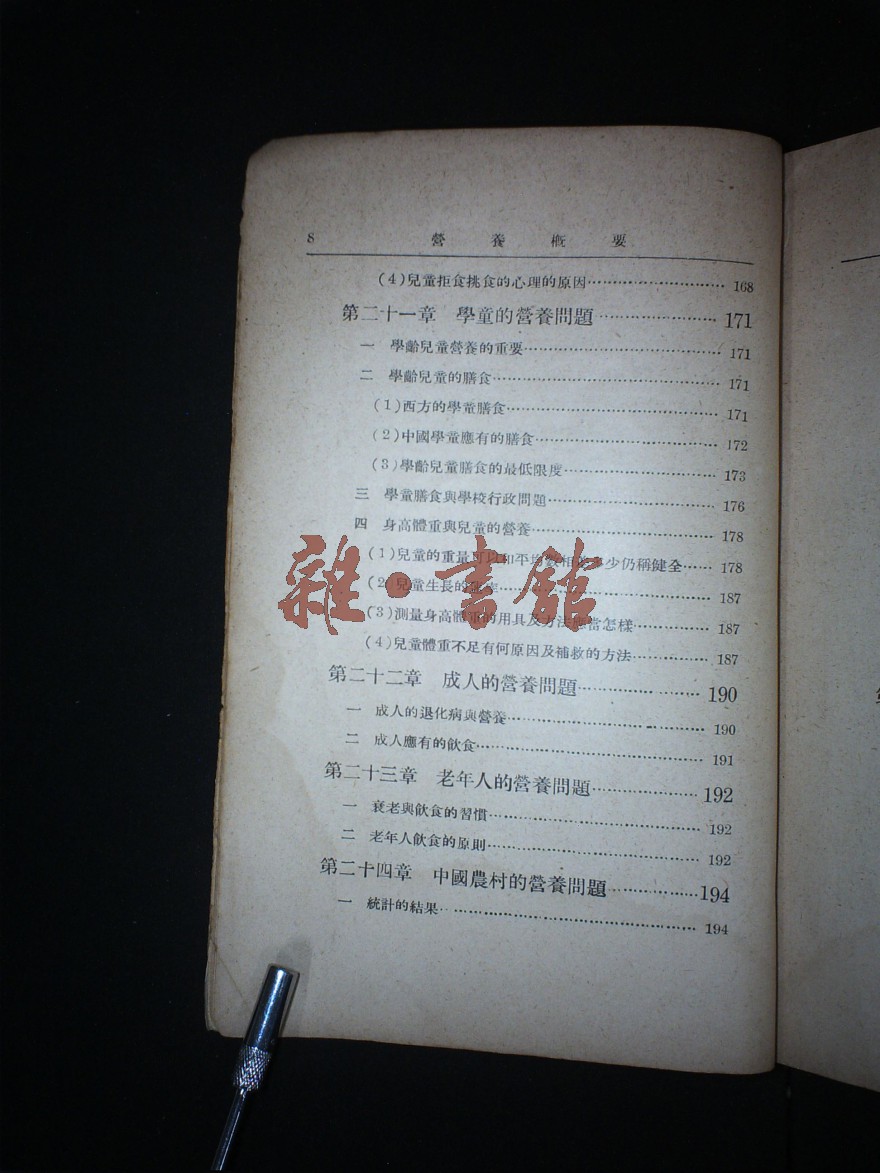 8 營養概要
(4)兒童拒食挑食的心理的原因 168
第二十一章 學童的營養問題 171
一 學齡兒童營養的重要 171
二 學齡兒童的膳食 171
(1)西方的學童膳食 171
(2)中國學童應有的膳食 172
(3)學齡兒童膳食的最低限度 173
三 學童膳食與學校行政問題 176
四 身高體重與兒童的營養 178
(1)兒童的重量可以和平均數相 少仍稱健全 178
(2)兒童生長的 187
(3)測量身高體重的用具及方法應當怎樣 187
(4)兒童體重不足有何原因及補救的方法 187
第二十二章 成人的營養問題 190
一 成人的退化病與營養 190
二 成人應有的飲食 191
第二十三章 老年人的營養問題 192
一 衰老與飲食的習慣 192
二 老年人飲食的原則 192
第二十四章 中國農村的營養問題 194
一 統計的結果 194
雜·書館